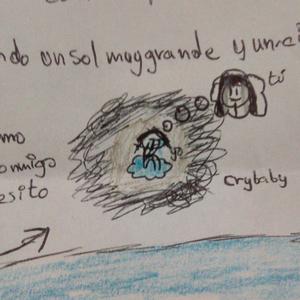 ndo un sol muy grande y un
tú
yo
omo
onmigo
esito
crybaby